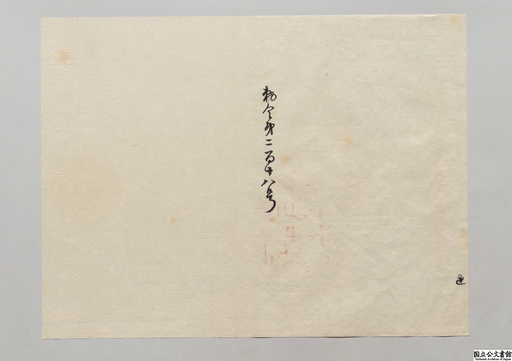 勅令第二百十八号
国立公文書館
National Archives of Japan